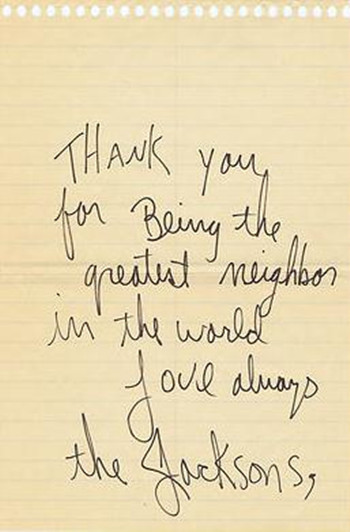 THANK you
for Being the
greatest neighbor
in the world
Love always
the Jacksons,